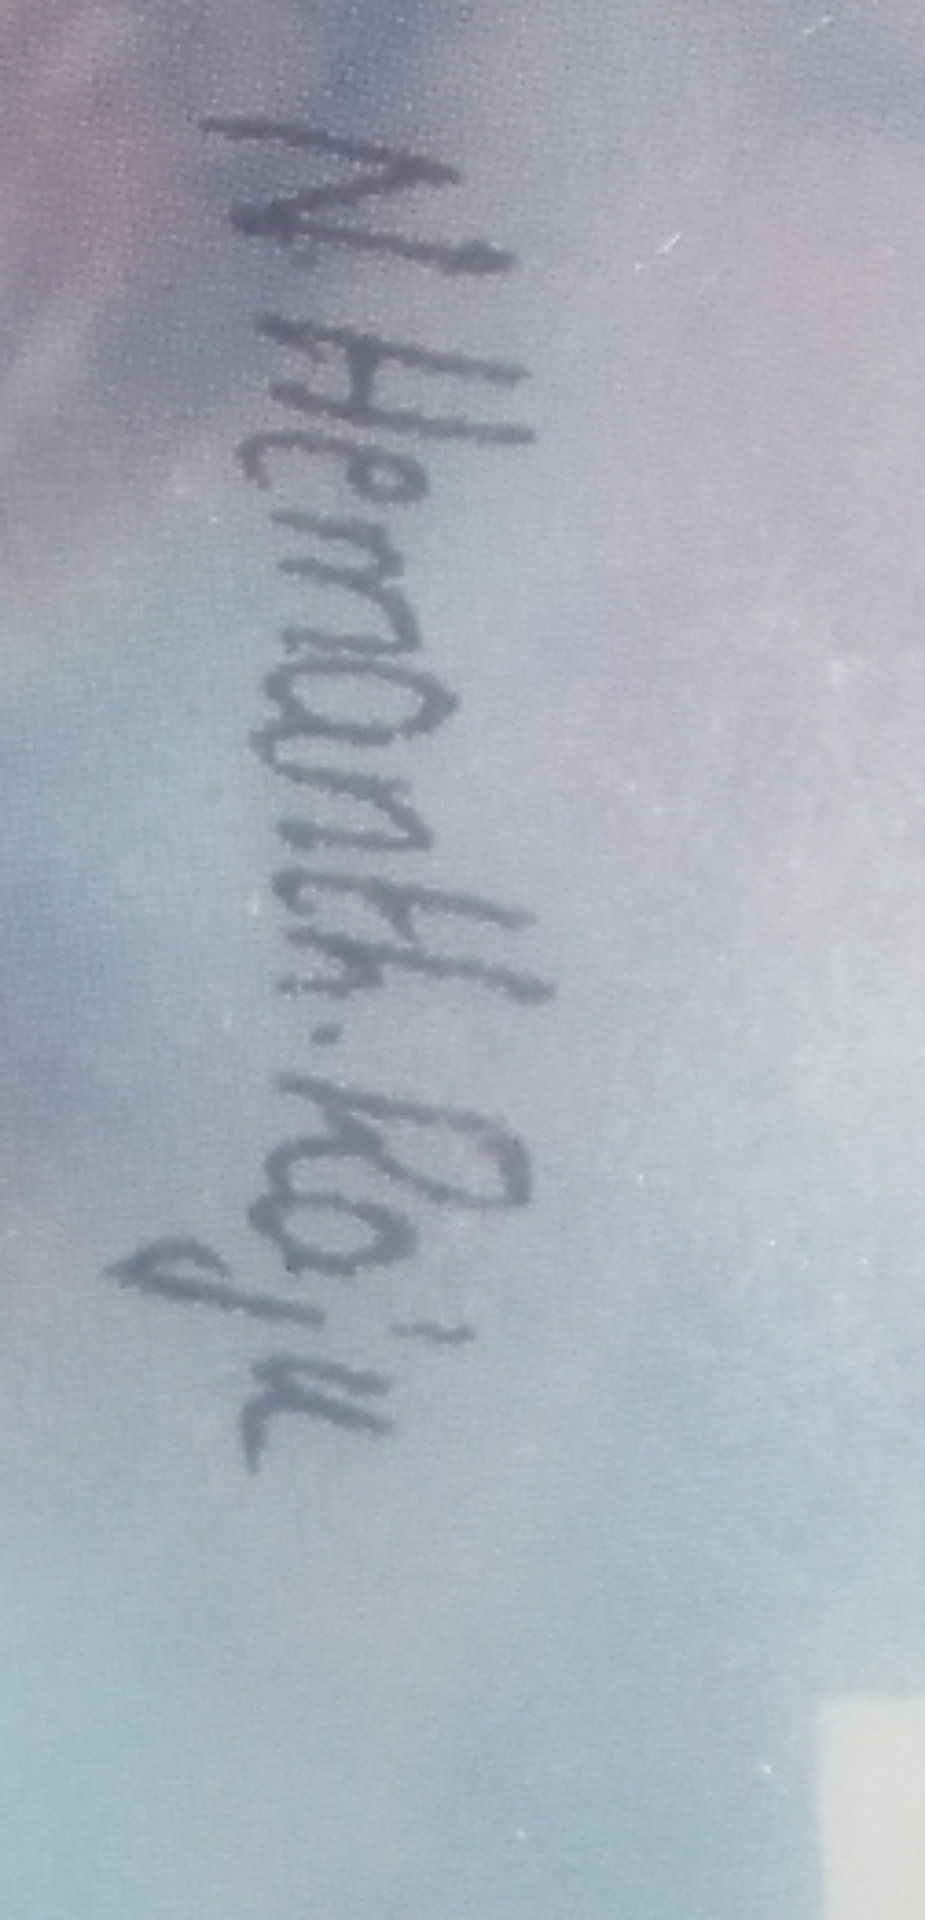 N Hemanth. Raju